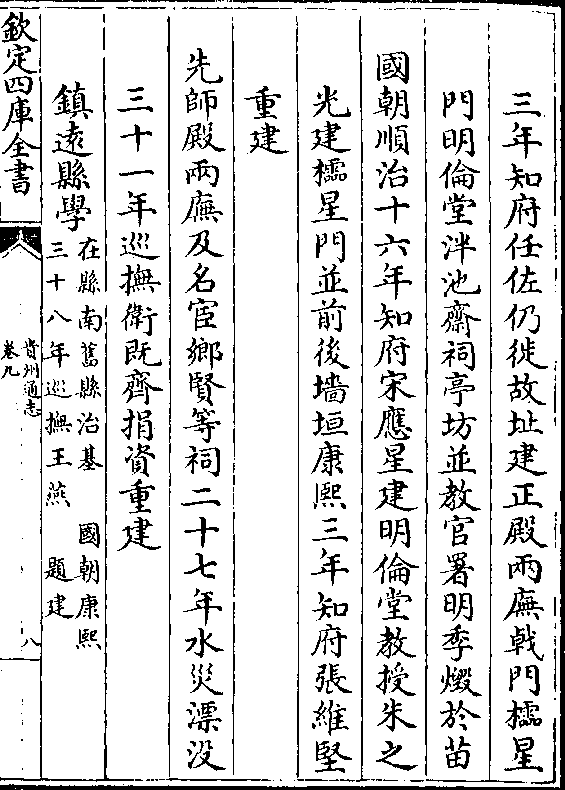 三年知府任佐仍徙故址建正殿兩廡㦸門櫺星
門明倫堂泮池齋祠亭坊並教官署明季燬於苗
國朝順治十六年知府宋應星建明倫堂教授朱之
光建櫺星門並前後墻垣康熙三年知府張維堅
重建
先師殿兩廡及名宦鄉賢等祠二十七年水災漂没
三十一年巡撫衛既齊捐資重建
鎮遠縣學在縣南舊縣治基 國朝康熙
三十八年巡撫王燕 題建
欽定四庫全書
貴州通志
卷九
八